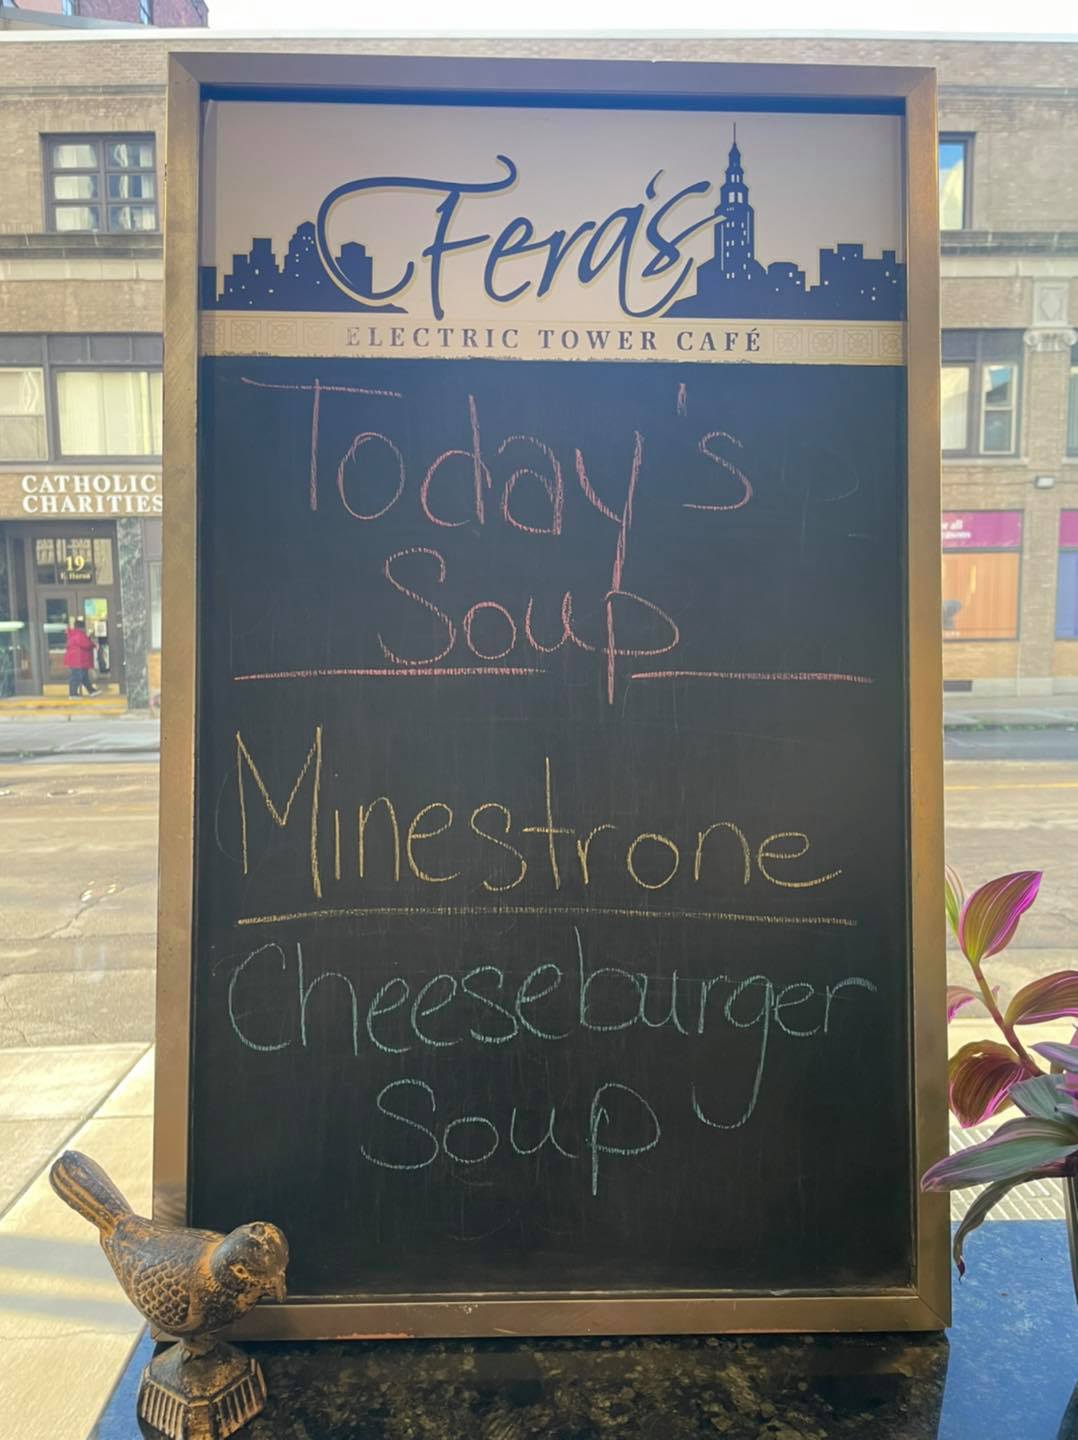 Fera's
ELECTRIC TOWER CAFÉ
Today's
Soup
Minestrone
Cheeseburger
Soup
CATHOLIC
CHARITIES
19